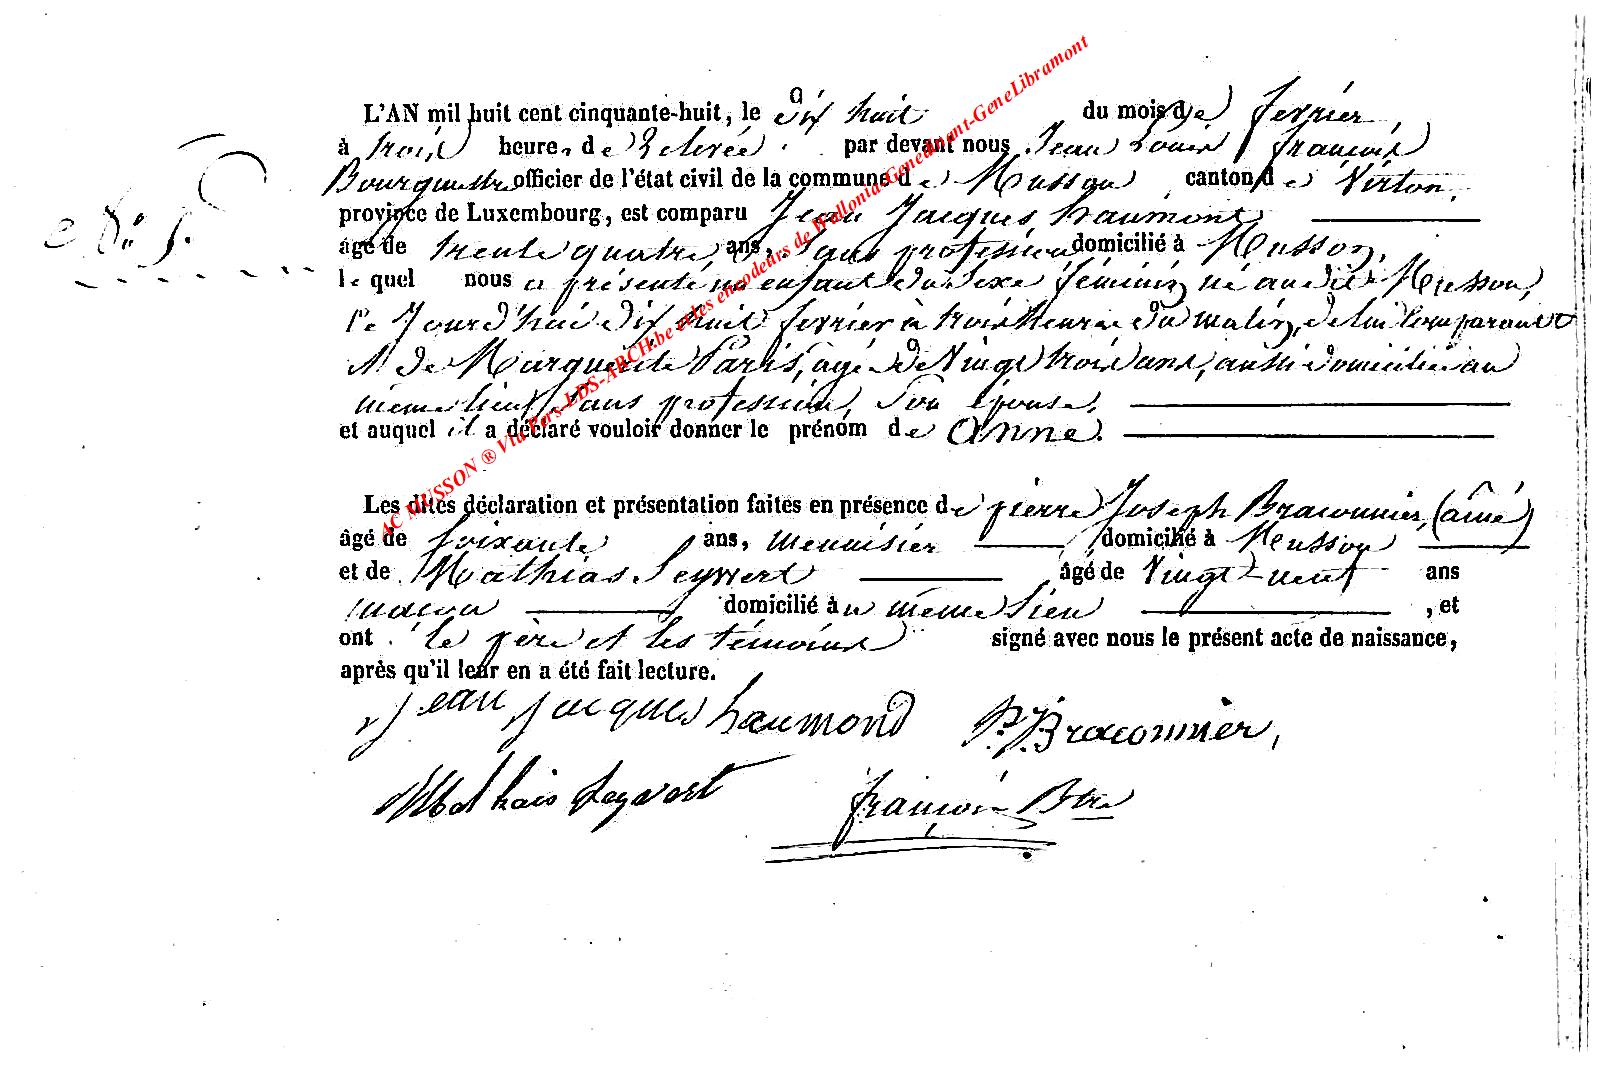 L'AN mil huit cent cinquante-huit, le dix huit du mois de fevrier,
à trois heures de Relevée par devant nous Jean Louis françois
Bourguestre officier de l'état civil de la commune de Musson canton de Virton,
province de Luxembourg, est comparu Jean Jacques haumont
N° 5.
âgé de trente quatre ans, Sans profession domicilié à Musson,
le quel nous a présenté un enfant du Sexe féminin né au dit Musson,
Ce Jourd'hui dix huit fevrier à trois heures du matin, de lui Comparant
et de Marguerite Paris, agée de Vingt trois ans, aussi domiciliée au
même lieu, Sans profession, Son épouse,
et auquel il a déclaré vouloir donner le prénom de Anne.
Les dites déclaration et présentation faites en présence de pierre Joseph Braconnier, (aîné)
âgé de Soixante ans, menuisier domicilié à Musson
et de Mathias Seywert âgé de Vingt-neuf ans
maçon domicilié au même Lieu , et
ont le père et les témoins signé avec nous le présent acte de naissance,
après qu'il leur en a été fait lecture.
jean jacques haumond P. J. Braconnier,
Mathais Seywert françois Btre
AC MUSSON ® Via Fers-LDS-ARCH.be et les encodeurs de Wallonia-Genedinant-GeneLibramont